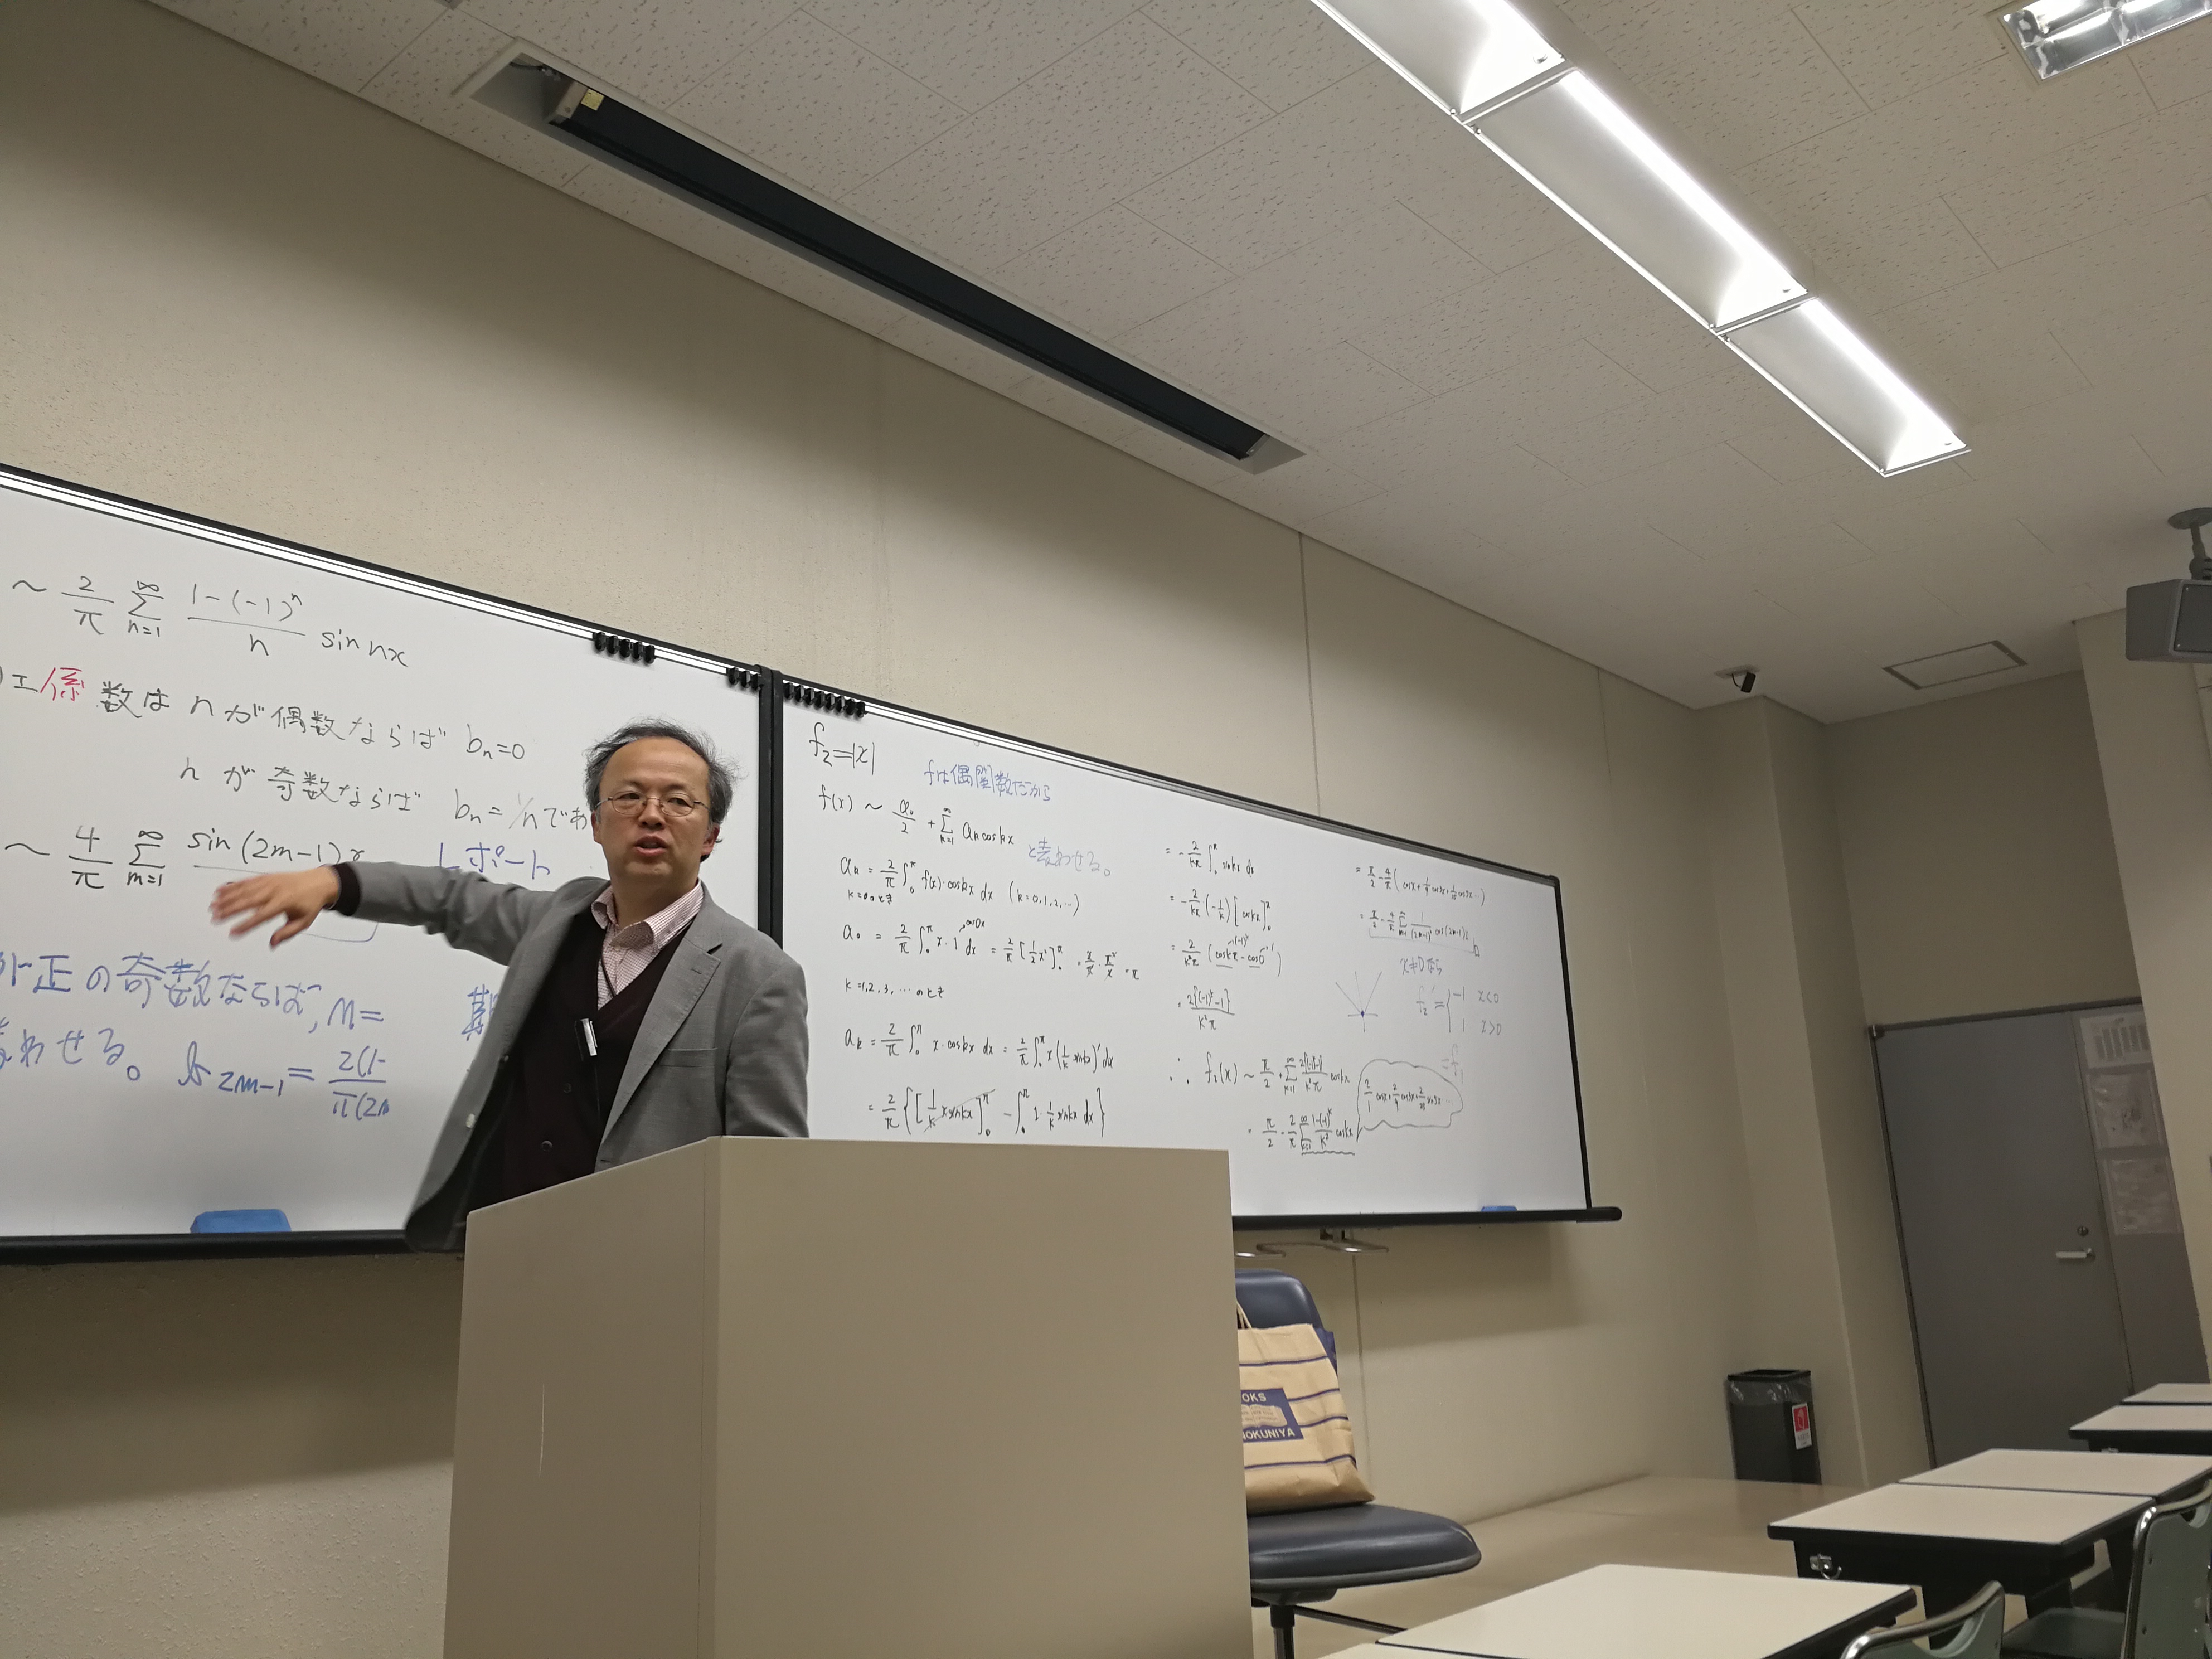 ~ 2/π ∑_{n=1}^{∞} (1-(-1)^n)/n sin nx
係数は nが偶数ならば b_n=0
nが奇数ならば b_n=1/nであ
~ 4/π ∑_{m=1}^{∞} sin(2m-1)x
レポート
正の奇数ならば, n=
期
表わせる。 b_{2m-1} = 2(1-
π(2m
f_2=|x|
fは偶関数だから
f(x) ~ a_0/2 + ∑_{k=1}^{∞} a_k cos kx
と表わせる。
a_k = 2/π ∫_0^π f(x)·cos kx dx (k=0,1,2,…)
k=0のとき
a_0 = 2/π ∫_0^π x·1 dx = 2/π [1/2 x²]_0^π = 2/π · π²/2 = π
cos0x
k=1,2,3,…のとき
a_k = 2/π ∫_0^π x·cos kx dx = 2/π ∫_0^π x(1/k sin kx)' dx
= 2/π {[1/k x sin kx]_0^π - ∫_0^π 1·1/k sin kx dx}
= -2/kπ ∫_0^π sin kx dx
= -2/kπ (-1/k) [cos kx]_0^π
= 2/k²π (cos kπ - cos 0)
(-1)^k
1
= 2{(-1)^k-1}/k²π
∴ f_2(x) ~ π/2 + ∑_{k=1}^{∞} 2{(-1)^k-1}/k²π cos kx
= π/2 - 2/π ∑_{k=1}^{∞} (1-(-1)^k)/k² cos kx
= π/2 - 4/π (cos x + 1/9 cos 3x + 1/25 cos 5x …)
= π/2 - 4/π ∑_{m=1}^{∞} 1/(2m-1)² cos(2m-1)x
x≠0なら
f_2' = { -1 x<0
1 x>0
= f_1
2/1 cos x + 2/9 cos 3x + 2/25 cos 5x …
OKS
NOKUNIYA